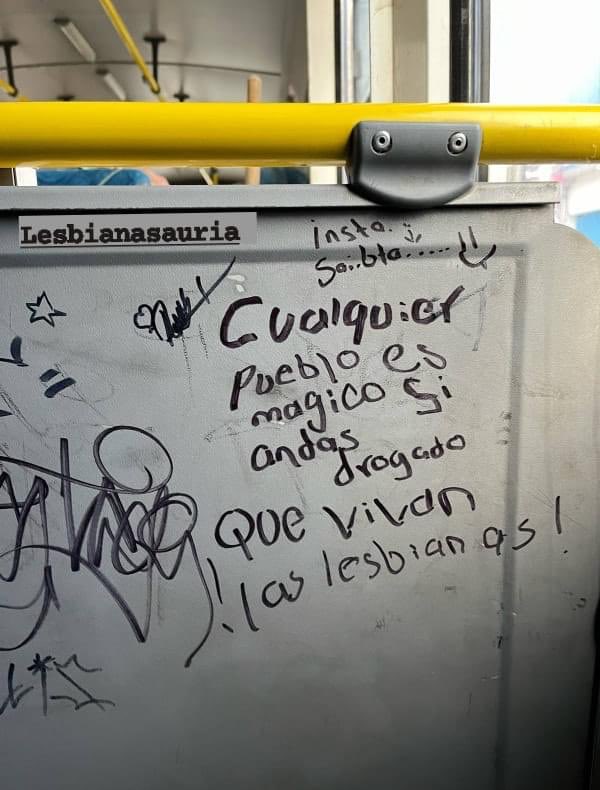 Lesbianasauria
insta.
Cualquier
pueblo es
magico si
andas
drogado
QUE vivan
las lesbianas!